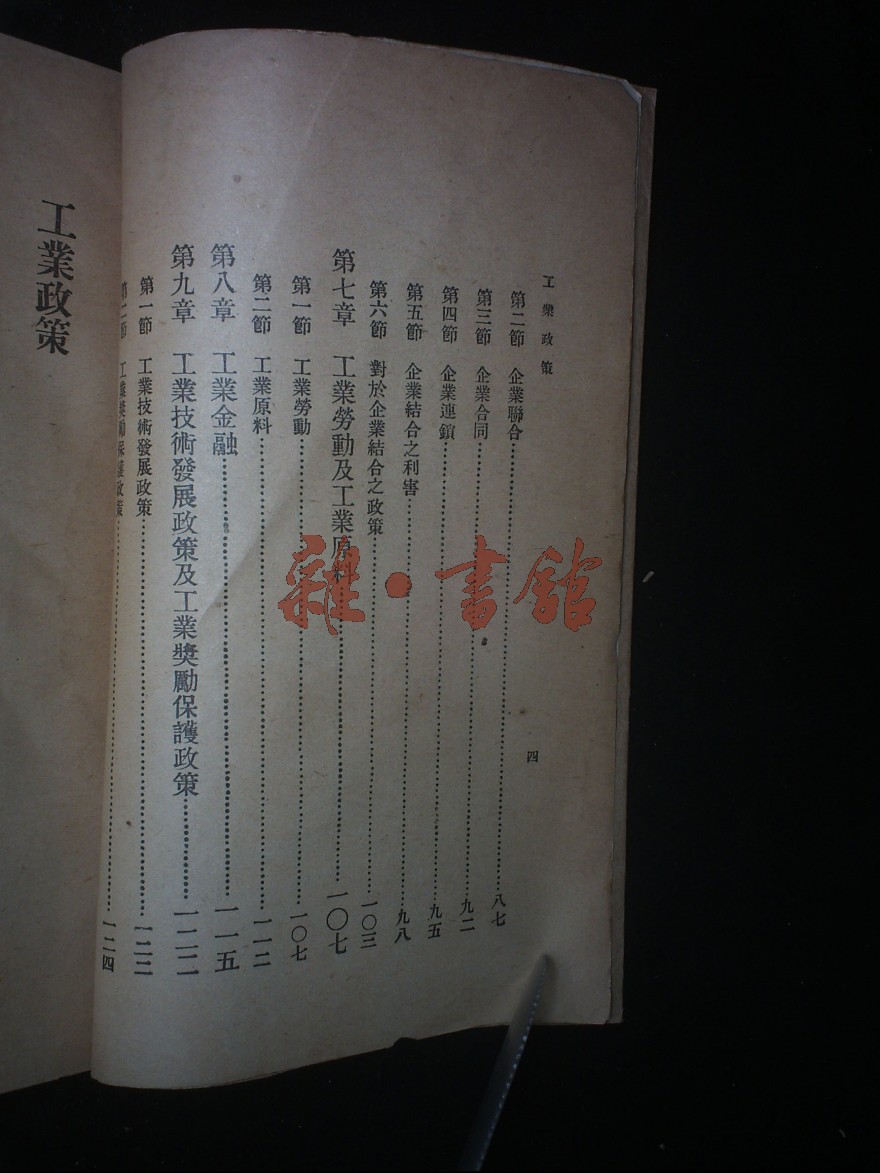 工業政策
四
第二節　企業聯合……八七
第三節　企業合同……九二
第四節　企業連鎖……九五
第五節　企業結合之利害……九八
第六節　對於企業結合之政策……一〇三
第七章　工業勞動及工業原料……一〇七
第一節　工業勞動……一〇七
第二節　工業原料……一一二
第八章　工業金融……一一五
第九章　工業技術發展政策及工業獎勵保護政策……一二二
第一節　工業技術發展政策……一二二
第二節　工業獎勵保護政策……一二四
工業政策
雜·書館